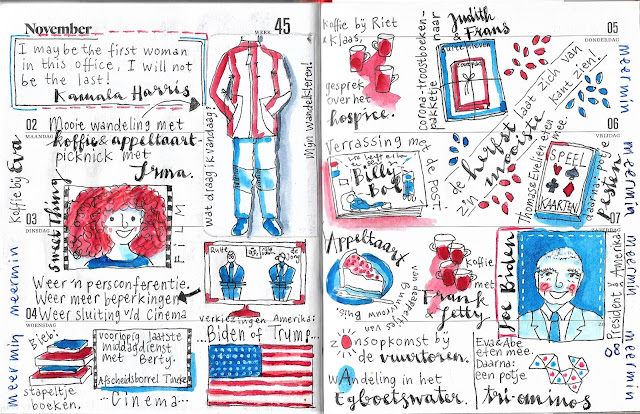 November
WEEK 45
I may be the first woman
in this office, I will not
be the last!
Kamala Harris
02
MAANDAG
Mooie wandeling met
koffie & appeltaart-
picknick met
Irma.
Koffie bij Eva
wat draag ik vandaag?
Mijn wandelkleren!
03
DINSDAG
Sweet Thing
FILM
meermin
Weer 'n persconferentie.
Weer meer beperkingen
Weer sluiting v/d cinema
04
WOENSDAG
meermin
Bieb:
stapeltje
boeken.
voorlopig laatste
middagdienst
met Berty.
Afscheidsborrel Tineke
...Cinema...
Rutte
de Jonge
verkiezingen Amerika:
Biden of Trump...
Koffie bij Riet
& Klaas,
gesprek
over het
hospice.
corona-troostboeken-
pakketje
naar
Judith
& Frans
05
DONDERDAG
meermin
de herfst laat zich van
z'n mooiste kant zien.
Verrassing met
de post
Billy
Bob
06
VRIJDAG
meermin
Thomas & Evalien eten mee.
Daarna: potje
SPEEL
KAARTEN
Appeltaart
van de appeltjes van
Koffie
met
Frank
& Jetty
zonsopkomst bij
de vuurtoren.
Wandeling in het
Eyboetswater.
07
ZATERDAG
Joe Biden
President v. Amerika
meermin
08
meermin
Eva & Abe
eten mee.
Daarna:
een potje
tri-ominos